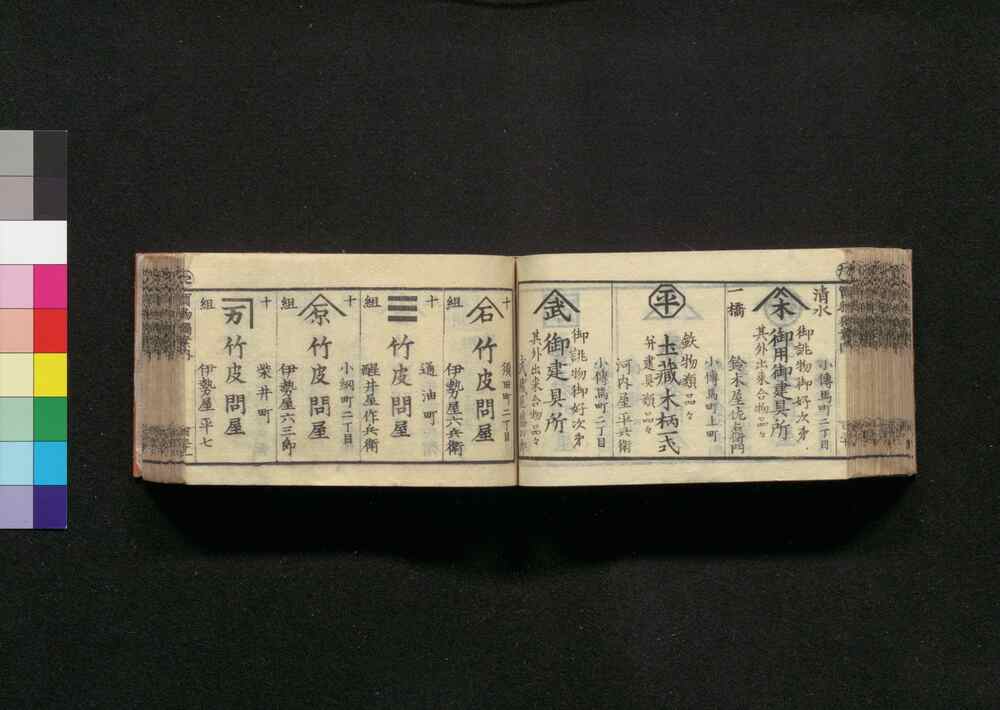 清水
一橋
小傳馬町二丁目
御誂物御好次第
御用御建具所
其外出来合物品々
鈴木屋佐右衛門
平
小傳馬町上町
鉄物類品々
土藏木柄一式
并建具類品々
河内屋平兵衛
武
小傳馬町二丁目
御誂物御好次第
御建具所
其外出来合物品々
十組
須田町二丁目
竹皮問屋
伊勢屋六兵衛
十組
通油町
竹皮問屋
醒井屋作兵衛
十組
小網町二丁目
竹皮問屋
伊勢屋六三郎
十組
柴井町
竹皮問屋
伊勢屋平七